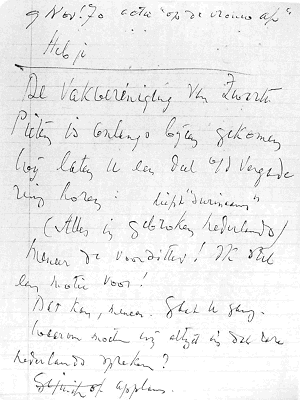 9 Nov. '70 acta "op de vrouw af"
Heb je
De Vakvereniging van Zwarte
Pieten is onlangs bijeen gekomen
wij laten u een deel v/d vergade
ring horen: liefst "Surinaams"
(Alles in gebroken Nederlands)
Meneer de voorzitter! Ik stel
een motie voor!
Dat kan, meneer. Gaat u gang.
Waarom moeten wij altijd in dat rare
Nederlands spreken?
applaus.